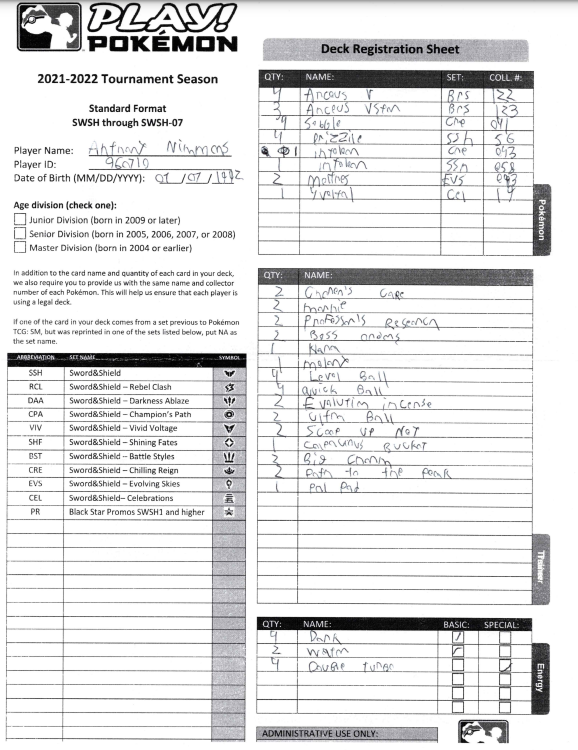 PLAY!
POKÉMON
2021-2022 Tournament Season
Standard Format
SWSH through SWSH-07
Player Name: Anthony Nimmons
Player ID: 960710
Date of Birth (MM/DD/YYYY): 07 /07 / 1992
Age division (check one):
Junior Division (born in 2009 or later)
Senior Division (born in 2005, 2006, 2007, or 2008)
Master Division (born in 2004 or earlier)
In addition to the card name and quantity of each card in your deck,
we also require you to provide us with the same name and collector
number of each Pokémon. This will help us ensure that each player is
using a legal deck.
If one of the card in your deck comes from a set previous to Pokémon
TCG: SM, but was reprinted in one of the sets listed below, put NA as
the set name.
ABBREVIATION SET NAME SYMBOL
SSH Sword&Shield
RCL Sword&Shield – Rebel Clash
DAA Sword&Shield – Darkness Ablaze
CPA Sword&Shield – Champion's Path
VIV Sword&Shield – Vivid Voltage
SHF Sword&Shield – Shining Fates
BST Sword&Shield -- Battle Styles
CRE Sword&Shield – Chilling Reign
EVS Sword&Shield – Evolving Skies
CEL Sword&Shield– Celebrations
PR Black Star Promos SWSH1 and higher
Deck Registration Sheet
QTY: NAME: SET: COLL. #:
4 Arceus V Brs 122
3 Arceus VStar BrS 123
4 Sobble Cre 041
4 Drizzile SSh 56
1 inteleon Cre 043
1 inteleon SSh 058
2 EVS
1 Yveltal Cel 19
Pokémon
QTY: NAME:
2 Care
2 Marnie
2 Professor's Research
2 Boss orders
1
1 Melony
4 Level Ball
4 quick Ball
2 Evalution incense
2 Ultra Ball
2 Scoop up Net
1 Bucket
2 Big Charm
2 Path to the peak
1 Pal Pad
Trainer
QTY: NAME: BASIC: SPECIAL:
4 Dark
2 Water
4 Double turbo
Energy
ADMINISTRATIVE USE ONLY: